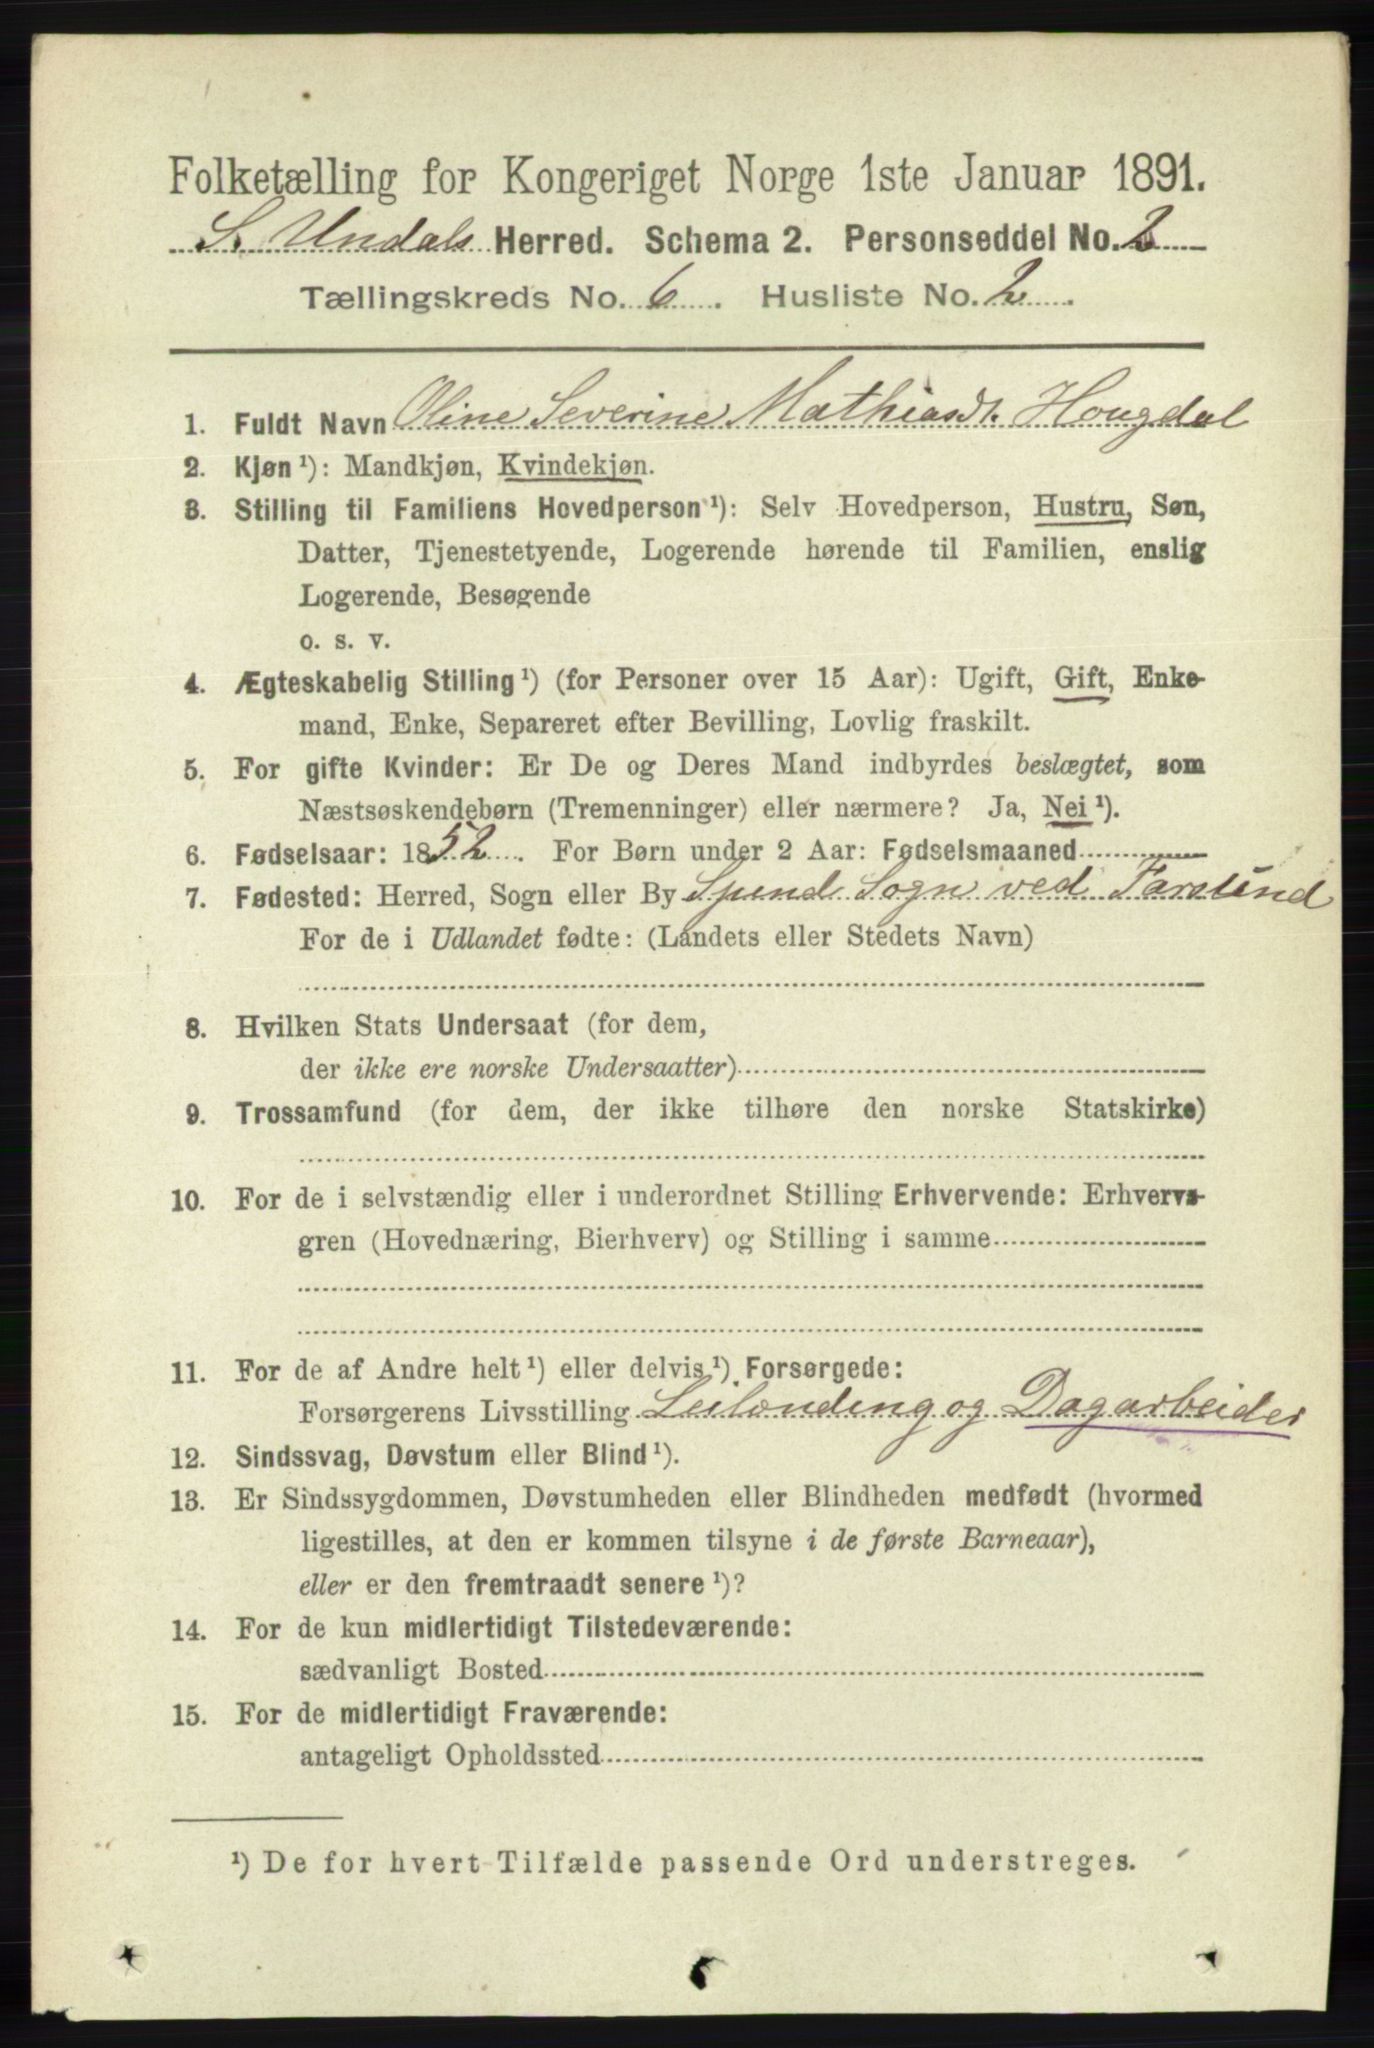 Folketælling for Kongeriget Norge 1ste Januar 1891.
S. Undals Herred. Schema 2. Personseddel No. 2
Tællingskreds No. 6. Husliste No. 2.
1. Fuldt Navn Oline Severine Mathiasdt. Hougdal
2. Kjøn ¹): Mandkjøn, Kvindekjøn.
3. Stilling til Familiens Hovedperson ¹): Selv Hovedperson, Hustru, Søn,
Datter, Tjenestetyende, Logerende hørende til Familien, enslig
Logerende, Besøgende
o. s. v.
4. Ægteskabelig Stilling ¹) (for Personer over 15 Aar): Ugift, Gift, Enke-
mand, Enke, Separeret efter Bevilling, Lovlig fraskilt.
5. For gifte Kvinder: Er De og Deres Mand indbyrdes beslægtet, som
Næstsøskendebørn (Tremenninger) eller nærmere? Ja, Nei ¹).
6. Fødselsaar: 1852. For Børn under 2 Aar: Fødselsmaaned
7. Fødested: Herred, Sogn eller By Spind Sogn ved Farsund
For de i Udlandet fødte: (Landets eller Stedets Navn)
8. Hvilken Stats Undersaat (for dem,
der ikke ere norske Undersaatter)
9. Trossamfund (for dem, der ikke tilhøre den norske Statskirke)
10. For de i selvstændig eller i underordnet Stilling Erhvervende: Erhvervs-
gren (Hovednæring, Bierhverv) og Stilling i samme
11. For de af Andre helt ¹) eller delvis ¹) Forsørgede:
Forsørgerens Livsstilling Leilænding og Dagarbeider
12. Sindssvag, Døvstum eller Blind ¹).
13. Er Sindssygdommen, Døvstumheden eller Blindheden medfødt (hvormed
ligestilles, at den er kommen tilsyne i de første Barneaar),
eller er den fremtraadt senere ¹)?
14. For de kun midlertidigt Tilstedeværende:
sædvanligt Bosted
15. For de midlertidigt Fraværende:
antageligt Opholdssted
¹) De for hvert Tilfælde passende Ord understreges.